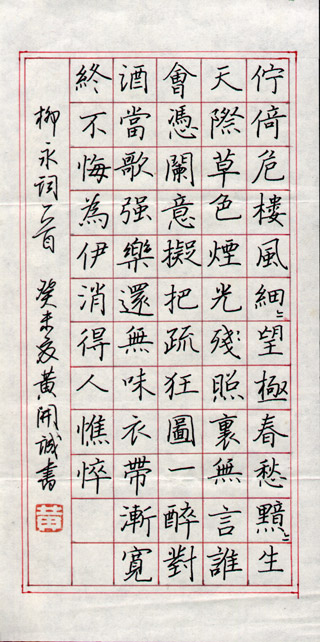 佇倚危樓風細〻望極春愁黯〻生
天際草色煙光殘照裏無言誰
會憑闌意擬把疏狂圖一醉對
酒當歌强樂還無味衣帶漸寬
終不悔為伊消得人憔悴
柳永詞一首 癸未夏黃開誠書
黃